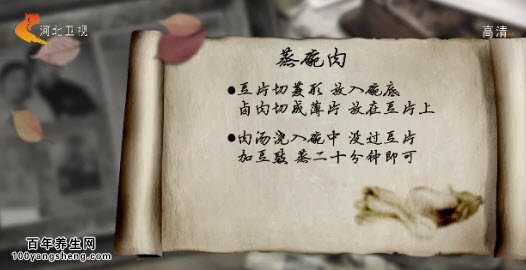 河北卫视
高清
蒸碗肉
●豆片切菱形 放入碗底
卤肉切成薄片 放在豆片上
●肉汤浇入碗中 没过豆片
加豆豉 蒸二十分钟即可
百年养生网
100yangsheng.com